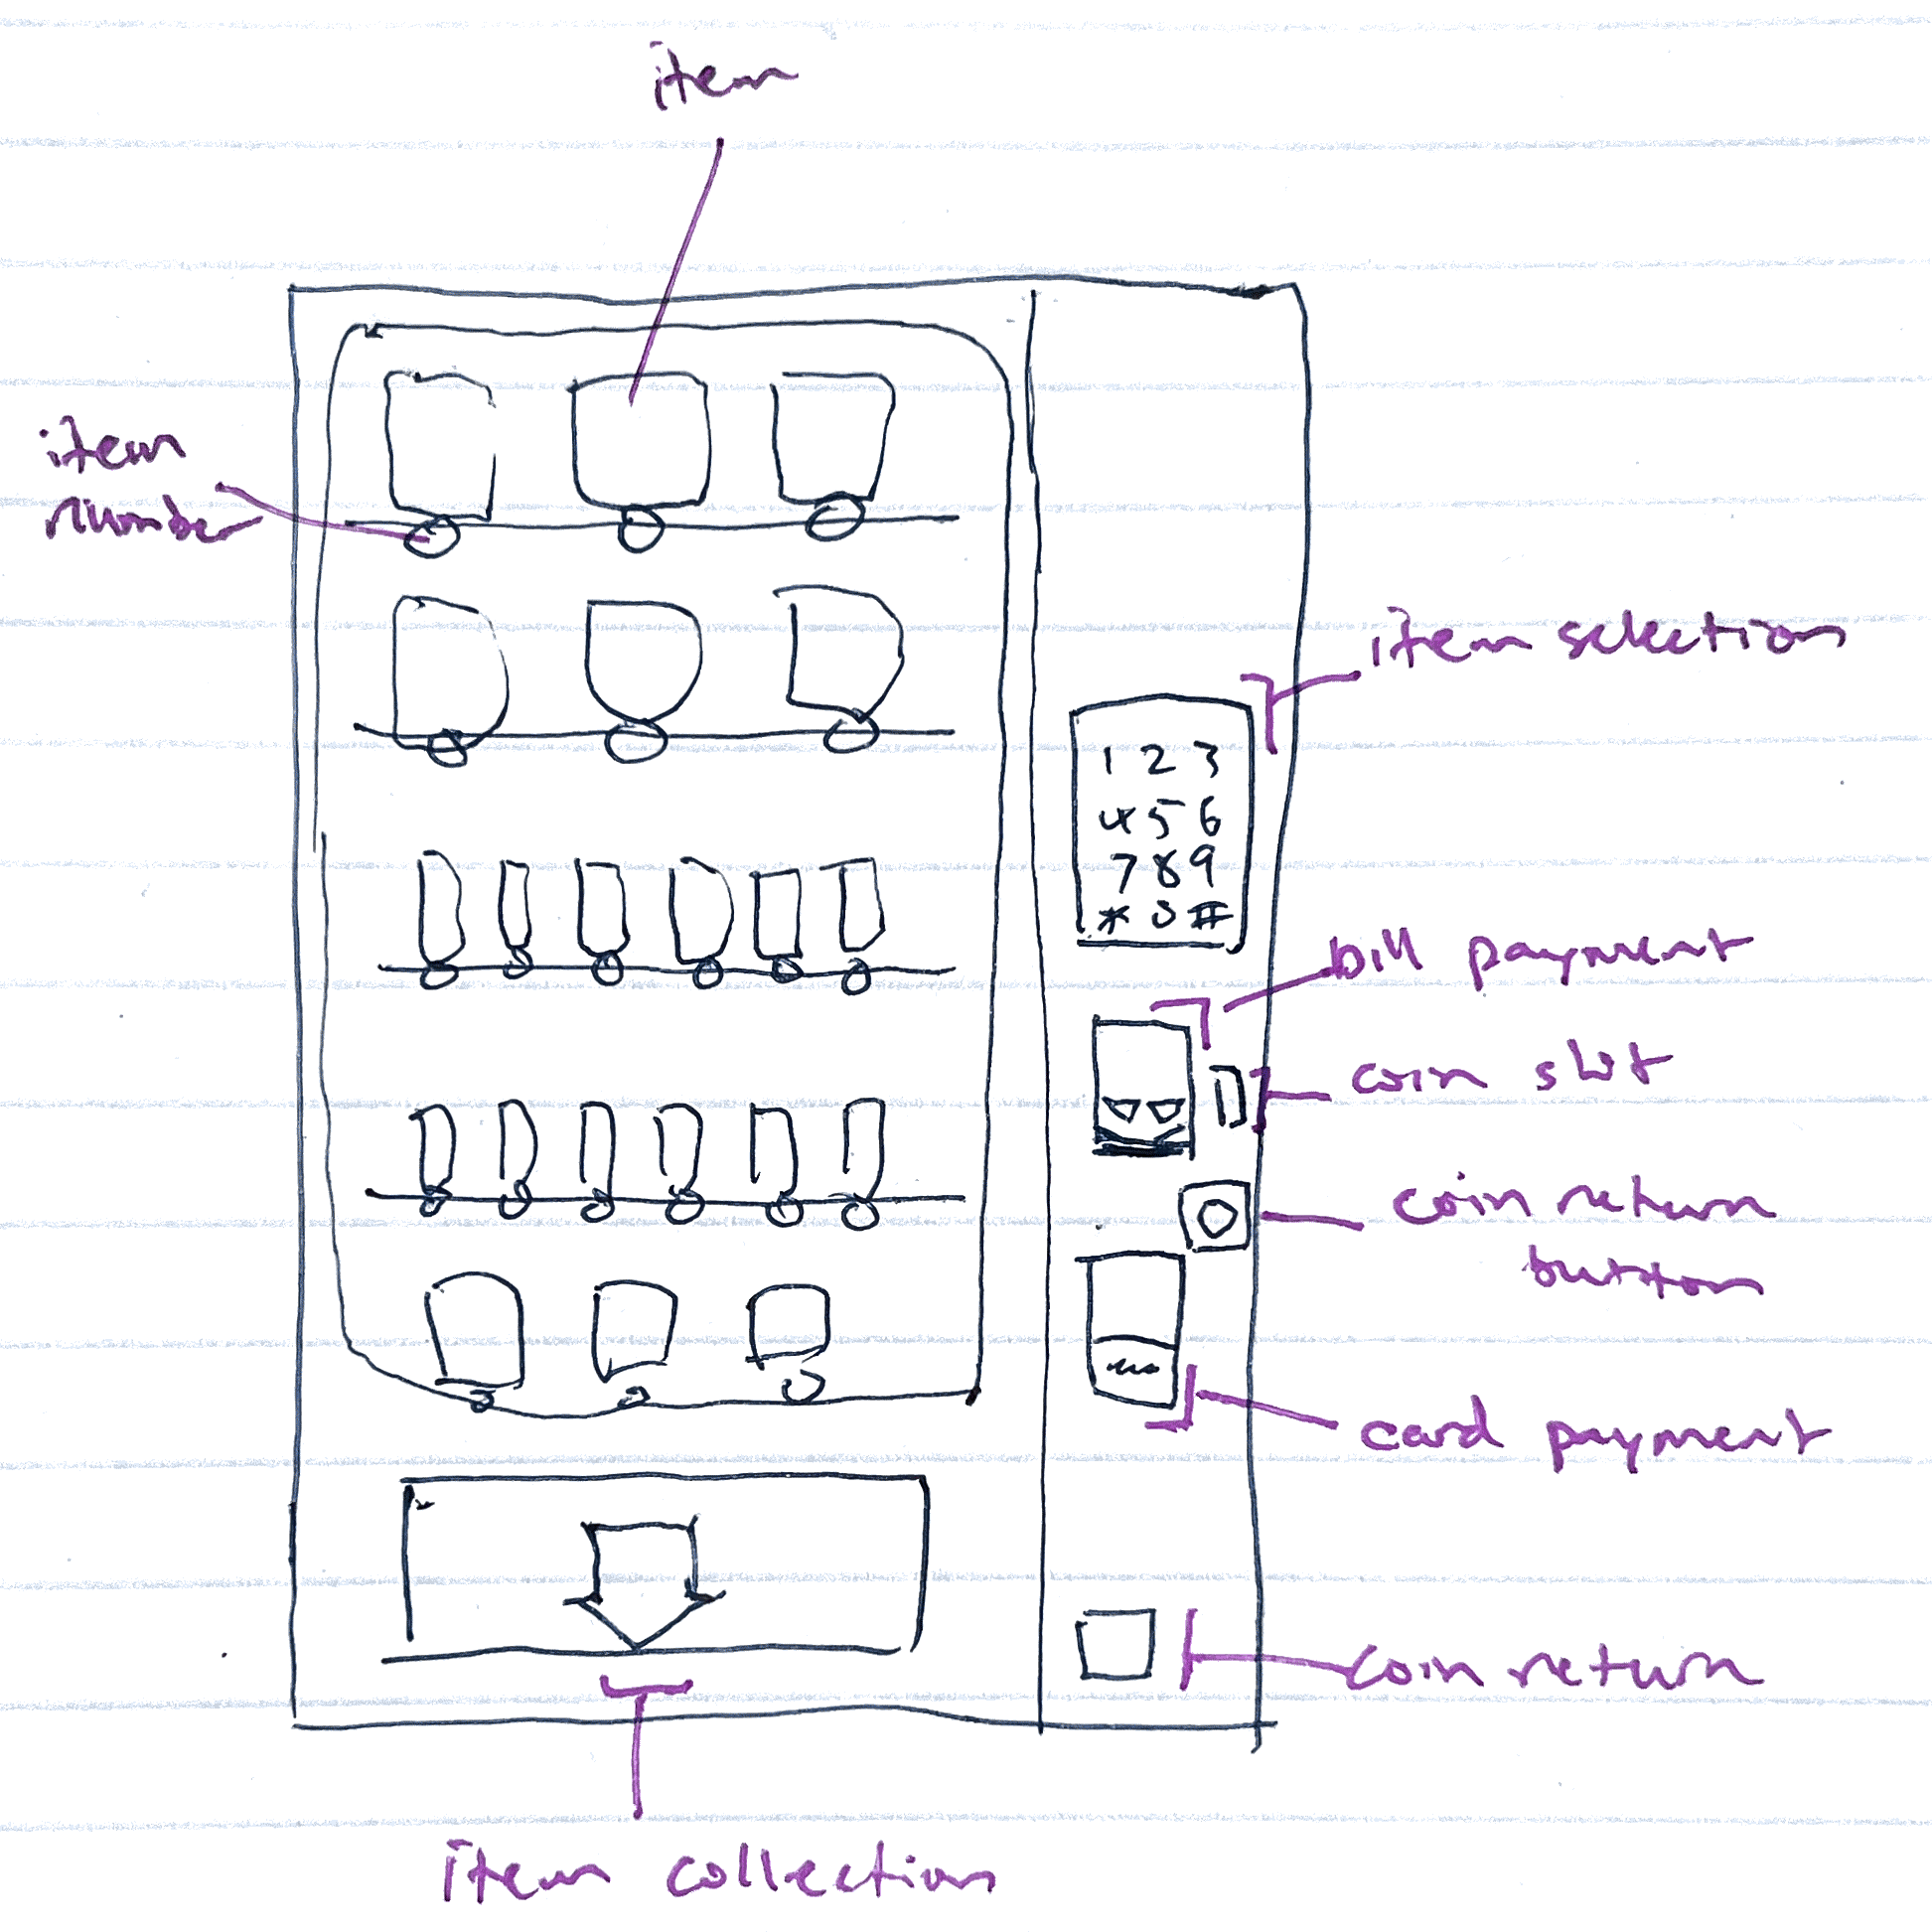 item
item
number
item selection
1 2 3
4 5 6
7 8 9
* 0 #
bill payment
coin slot
coin return
button
card payment
coin return
item collection